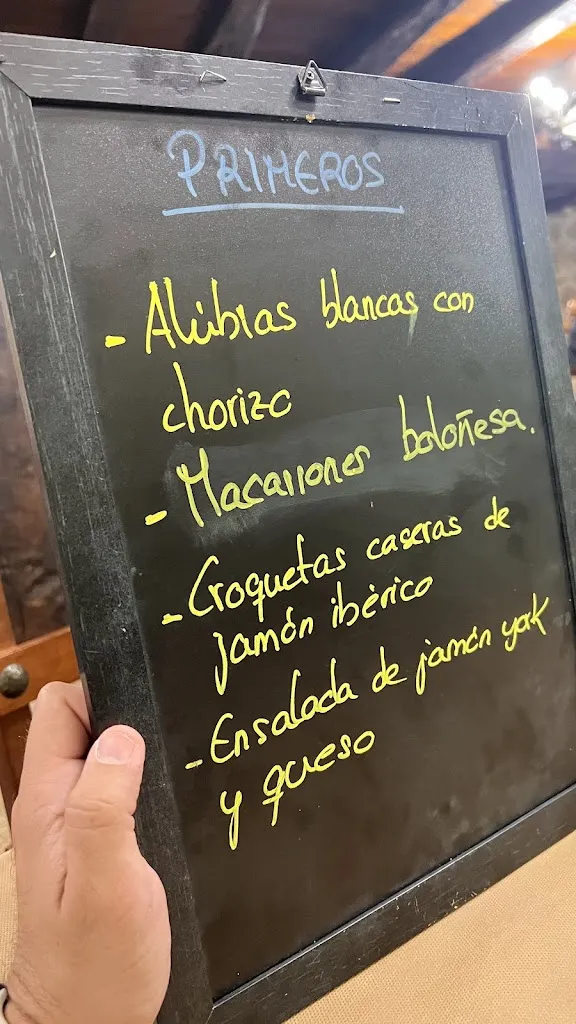 PRIMEROS
- Alubias blancas con
chorizo
- Macarrones boloñesa.
- Croquetas caseras de
jamón ibérico
- Ensalada de jamón york
y queso